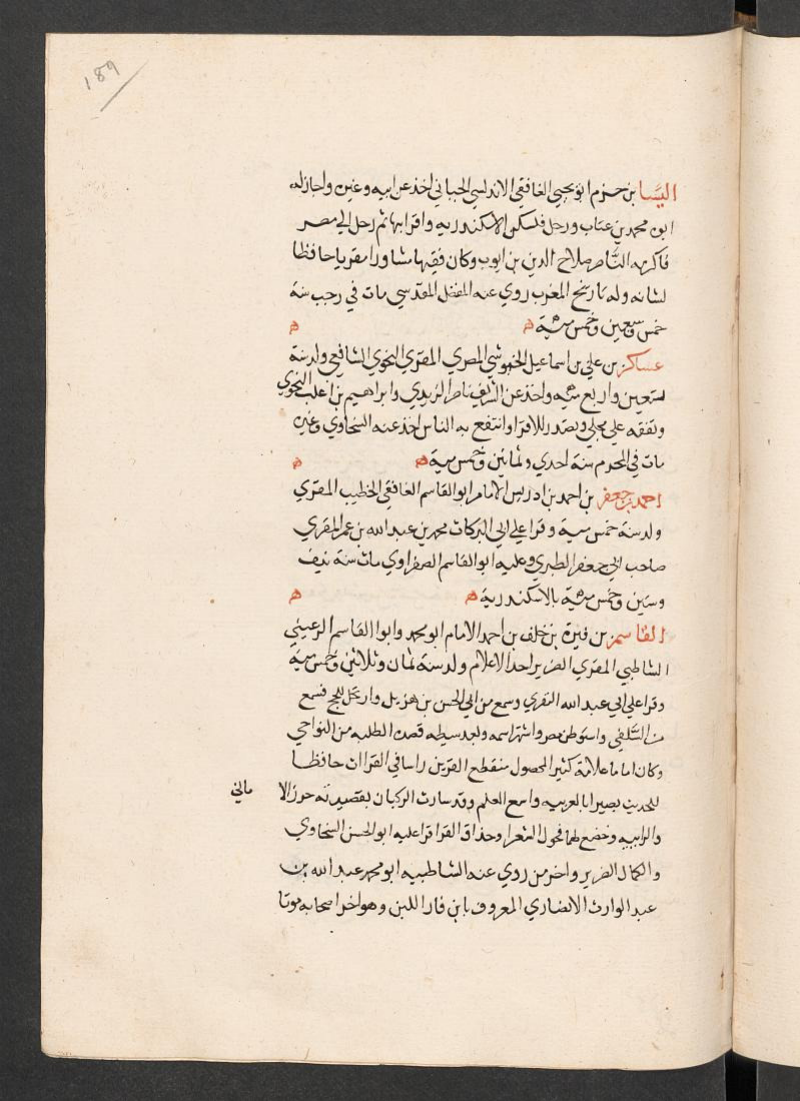 189
اليسا بن حزم ابو يحيى الغافقي الاندلسي الجياني اخذ عن ابيه وغيره واجاز له
ابو محمد بن عتاب ورحل فسكن الاسكندرية واقرا بها ثم رحل الي مصر
فاكرمه الناصر صلاح الدين بن ايوب وكان فقيها مشاورا مقريا حافظا
لشانه وله تاريخ المغرب روي عنه المفضل المقدسي مات في رجب سنة
خمس وسبعين وخمس مئية ه ه
عساكر بن علي بن اسماعيل الجيوشي المصري المقري النحوي الشافعي ولد سنة
تسعين واربع مئيه واخذ عن الشريف ناصر الزيدي وابراهيم بن اغلب النحوي
وتفقه علي مجلي وتصدر للاقرا وانتفع به الناس اخذ عنه السخاوي وغيره
مات في المحرم سنة احدي وثمانين وخمس مية ه ه
احمد بن جعفر بن احمد بن ادريس الامام ابو القاسم الغافقي الخطيب المقري
ولد سنة خمس مية وقرا علي ابي البركات محمد بن عبد الله بن عمر المقري
صاحب ابي جعفر الطبري وعليه ابو القاسم الصفراوي مات سنة نيف
وستين وخمس مئية بالاسكندرية ه ه
القاسم بن فيرة بن خلف بن احمد الامام ابو محمد وابوا القاسم الرعيني
الشاطبي المقري الضرير احد الاعلام ولد سنة ثمان وثلاثين وخمس مية
وقرا علي ابي عبد الله النفري وسمع من ابي الحسن بن هذيل وارتحل للحج فسمع
من السلفي واستوطن مصر واشتهر اسمه وبعد سيطه قصده الطلبه من النواحي
وكان اماما علامة كثير المحصول منقطع القرين راسا في القراات حافظا
للحديث بصيرا بالعربيه واسع العلم وقد سارت الركبان بقصيدته حرز الا ماني
والراييه وخضع لهما فحول الشعرا وحذاق القرا قرا عليه ابو الحسن السخاوي
والكمال الضرير واخر من روي عنه الشاطبيه ابو محمد عبد الله بن
عبد الوارث الانصاري المعروف بابن فار اللبن وهو اخر اصحابه موتا